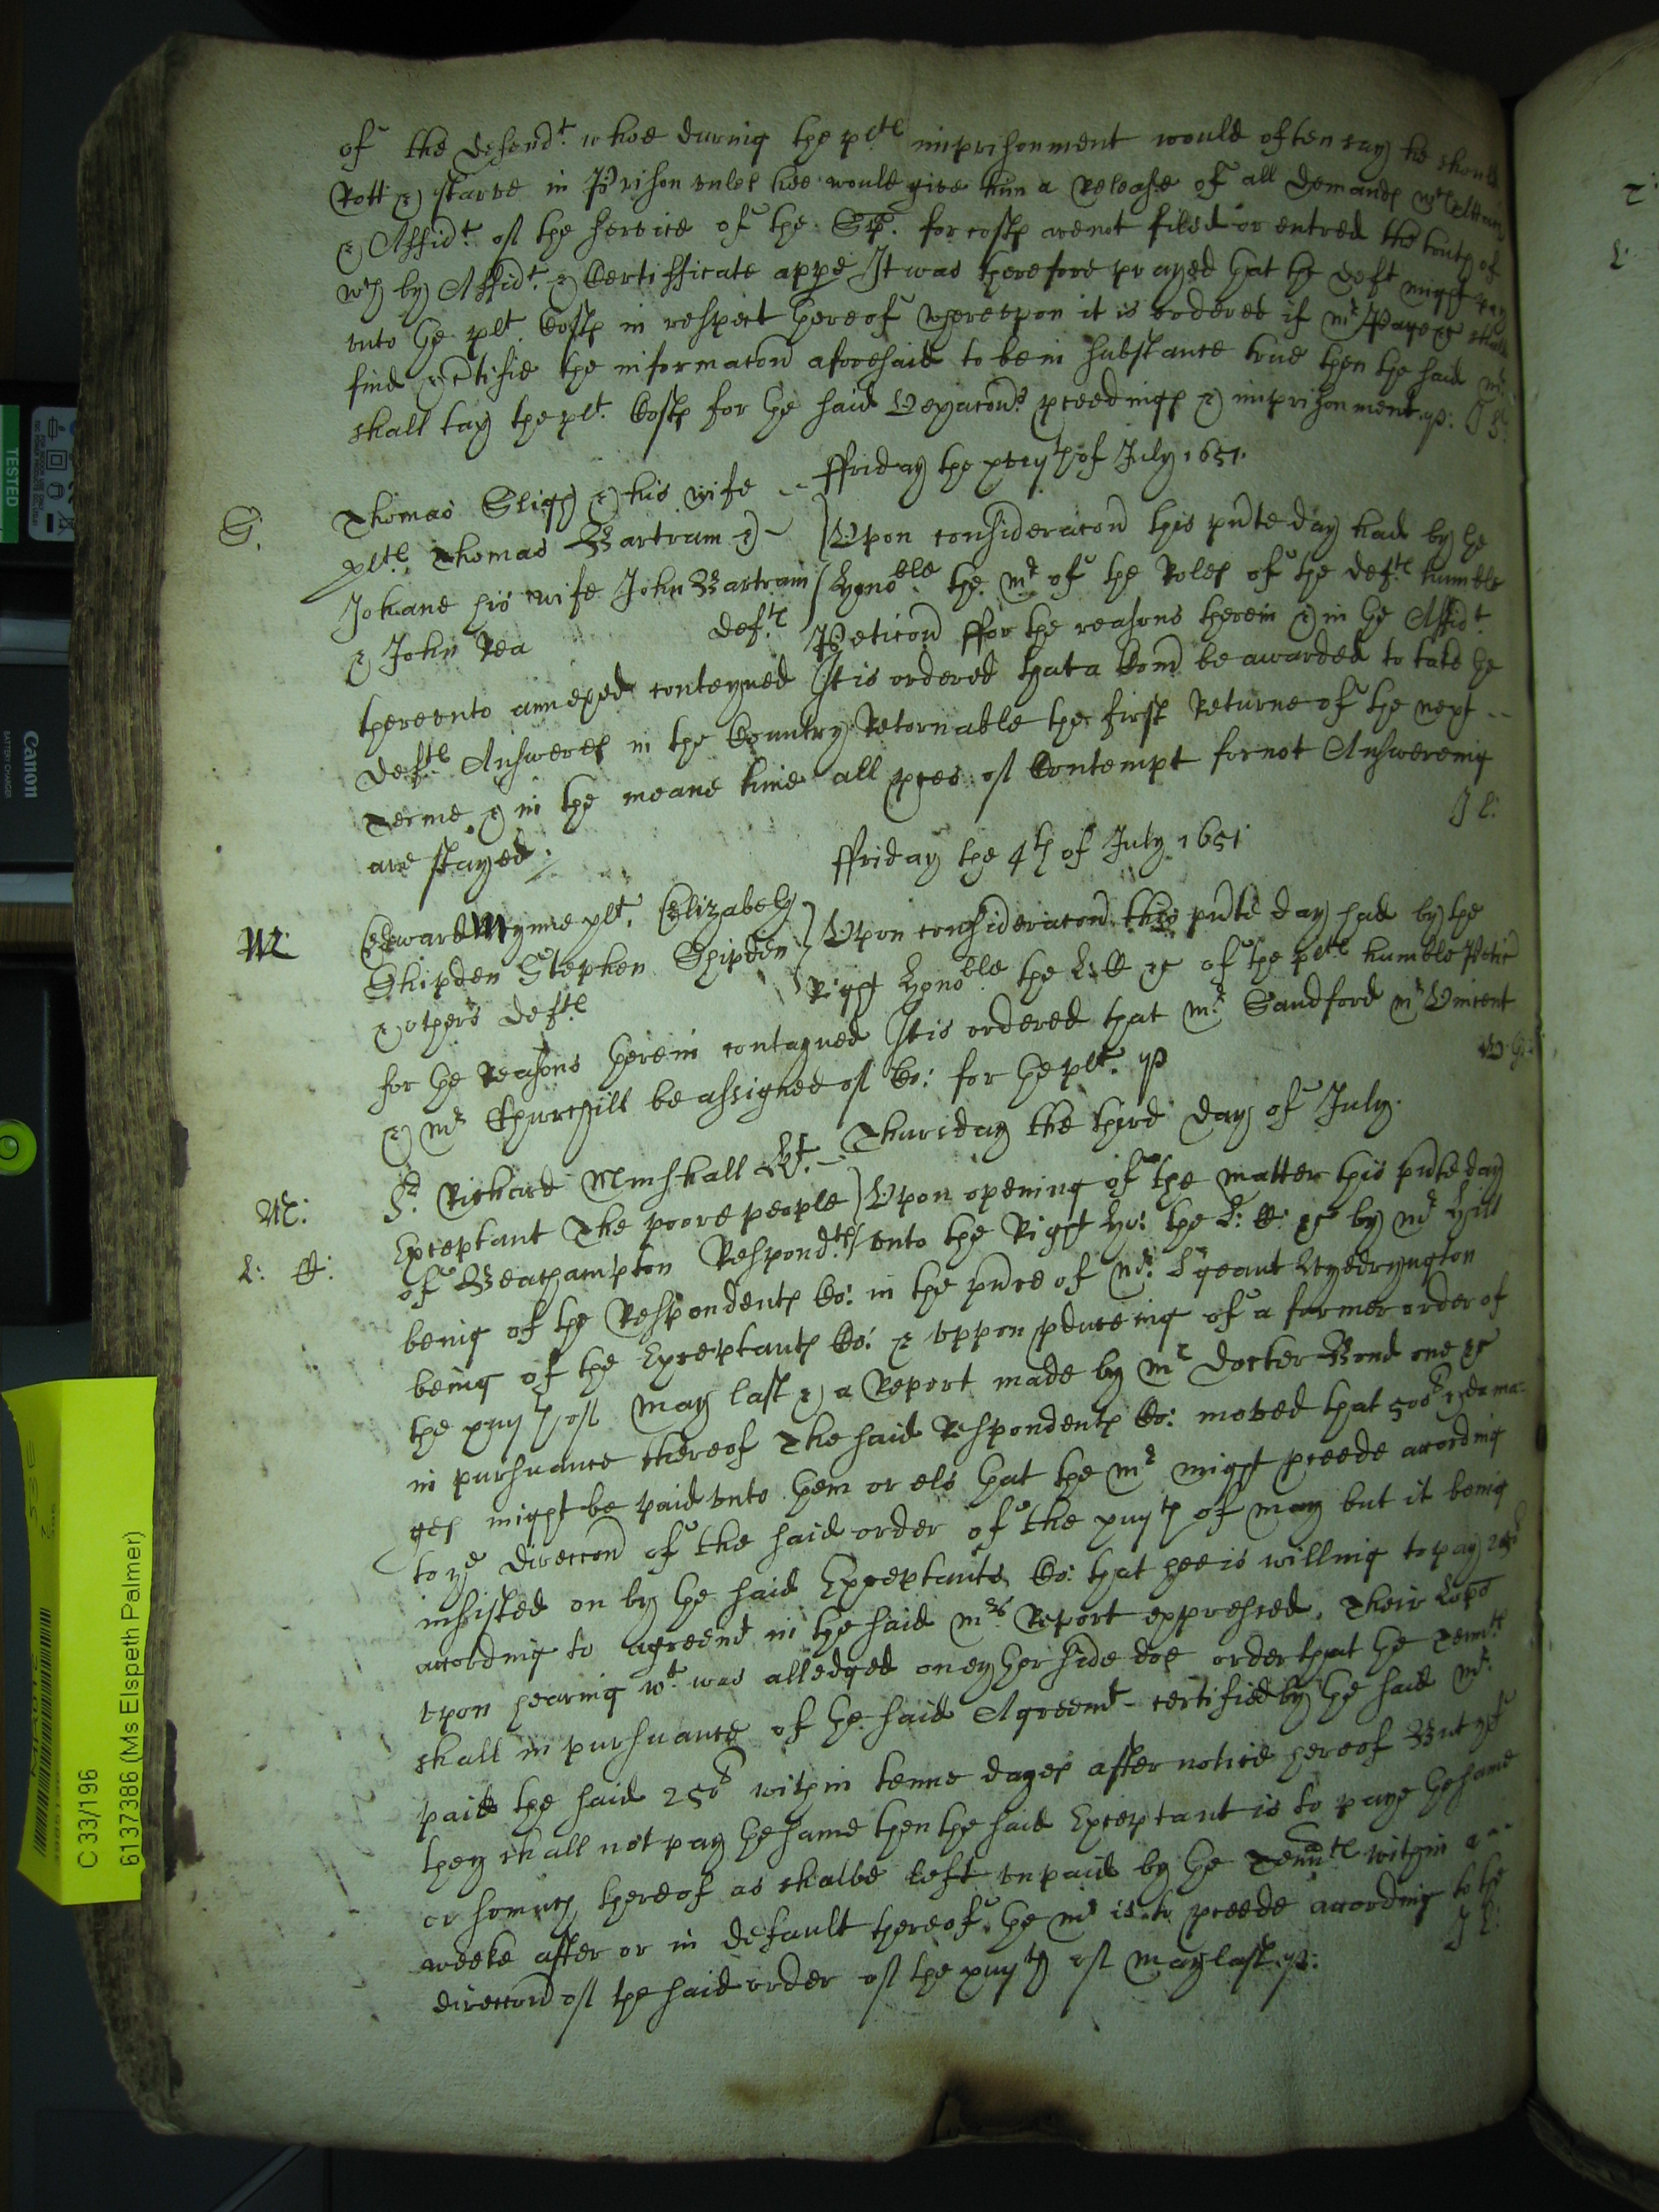 of the Defend.t whoe during the pl.ts imprisonment would often say he should
Rott & starve in Prison unles hee would give him a Release of all Demands w.ch
& Affid.t of the service of the Sp. for costs are not filed or entred the truth of
w.ch by Affid.t & Certifficate appe It was therefore prayed that the Deft might pay
unto the pl.t Costs in respect thereof whereupon it is ordered if m.r Page &c shall
find & ctifie the informacon aforesaid to be in substance true then the said m.r
shall tax the pl.t Costs for the said Vexacons pceedings & imprisonment. p: J L:
ffriday the xviijth of July 1651.
S. Thomas Sligh & his wife
pl.ts Thomas Bartram &
Johane his wife John Bartram
& John Rea Def.ts
Upon consideracon this pnte day had by the
Hono.ble the m.r of the Roles of the def.ts humble
Peticon ffor the reasons therein & in the Affid.t
thereunto annexed conteyned It is ordered that a Com be awarded to take the
def.ts Answeres in the Country Retornable the first Returne of the next
Terme & in the meane time all pces of Contempt for not Answereing
are stayed. J L:
ffriday the 4th of July 1651
M: Edward Mynne pl.t Elizabeth
Shipden Stephen Shipden
& others Def.ts
Upon consideracon this pnte day had by the
Right Hono.ble the L: C &c of the pl.ts humble Petic
for the Reasons therein contayned It is ordered that m.r Sandford m.r Vincent
& m.r Churchill be assigned of Co: for the pl.t p
Thursday the third day of July.
M: S.r Richard Minshall K.t
L: C: Exceptant The poore people
of Beachampton Respond.ts
Upon opening of the matter this pnte day
unto the Right Ho: the L: C: &c by m.r Hill
being of the Respondents Co: in the pnce of m.r Sgeant Wyedryngton
being of the Exceptants Co: & uppon pduceing of a former order of
the xiijth of May last & a Report made by m.r Docter Bond one &c
in pursuance thereof The said Respondents Co: moved that 500l & dama-
ges might be paid unto them or els that the m.r might pceede according
to ye direccon of the said order of the xiijth of may but it being
insisted on by the said Exceptants Co: that hee is willing to pay 250l
according to agreemt in the said m.rs Report expressed. Their Lopps
upon hearing w.t was alledged on eyther side doe order that the Tenn.ts
shall in pursuance of the said Agreem.t certified by the said m.r
paie the said 250l within tenne dayes after notice hereof But yf
they shall not pay the same then the said Exceptant is to paye the same
or somuch thereof as shalbe left unpaid by the Tenn.ts within a
weeke after or in default thereof the m.r is to pceede according to the
direccon of the said order of the xiijth of May last. p: J L:
TESTED
Canon
BATTERY CHARGER
C 33/196
6137386 (Ms Elspeth Palmer)